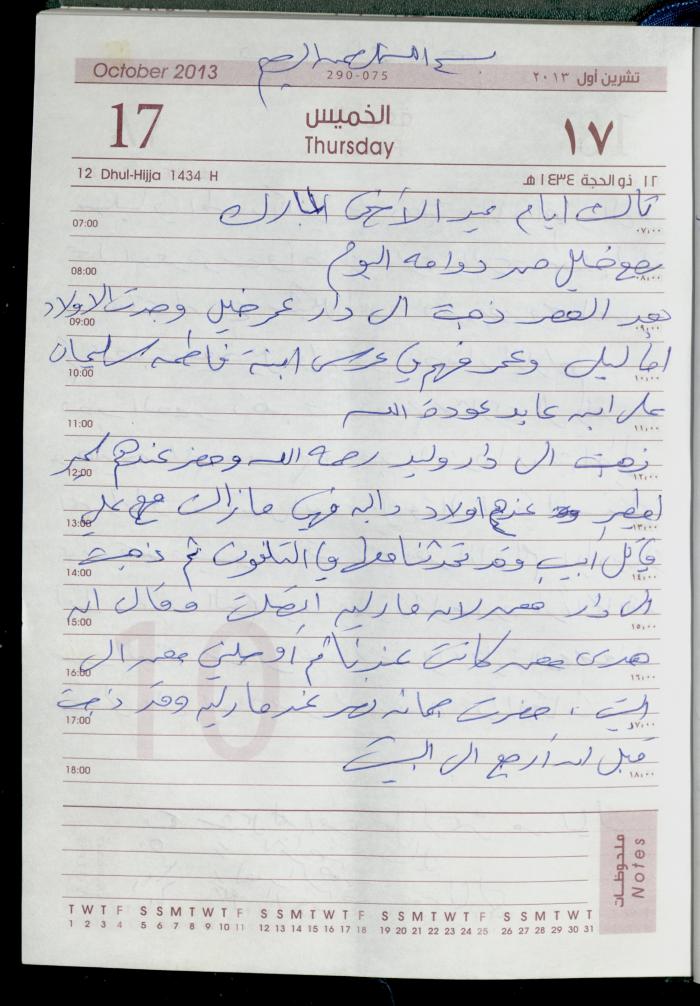 بسم الله الرحمن الرحيم
October 2013 290-075 تشرين أول ٢٠١٣
17 الخميس ١٧
Thursday
12 Dhul-Hijja 1434 H ١٢ ذو الحجة ١٤٣٤ هـ
ثالث ايام عيد الأضحى المبارك
07:00 ٠٧:٠٠
رجع خليل من دوامه اليوم
08:00 ٠٨:٠٠
بعد العصر ذهبت الى دار عمر خليل وجدت الاولاد
09:00 ٠٩:٠٠
أما ليلى وعمر فهم في عرس ابنة فاطمه سليمان
10:00 ١٠:٠٠
على ابن عابد عودة الله
11:00 ١١:٠٠
ذهبت الى دار وليد رحمه الله وحضر عندهم
12:00 ١٢:٠٠
عندهم اولاد داليه فهي مازالت مع علي
13:00 ١٣:٠٠
في تل أبيب وقد تحدثنا معها في التلفون ثم ذهبت
14:00 ١٤:٠٠
الى دار معمر لان ماريه اتصلت وقال ان
15:00 ١٥:٠٠
هدى معمر كانت عندنا ثم أوصلني معمر الى
16:00 ١٦:٠٠
البيت ، حضرت جمانه نصر عند ماريه وقد ذهبت
17:00 ١٧:٠٠
قبل ان أرجع الى البيت
18:00 ١٨:٠٠
ملحوظات
Notes
T W T F S S M T W T F S S M T W T F S S M T W T F S S M T W T
1 2 3 4 5 6 7 8 9 10 11 12 13 14 15 16 17 18 19 20 21 22 23 24 25 26 27 28 29 30 31